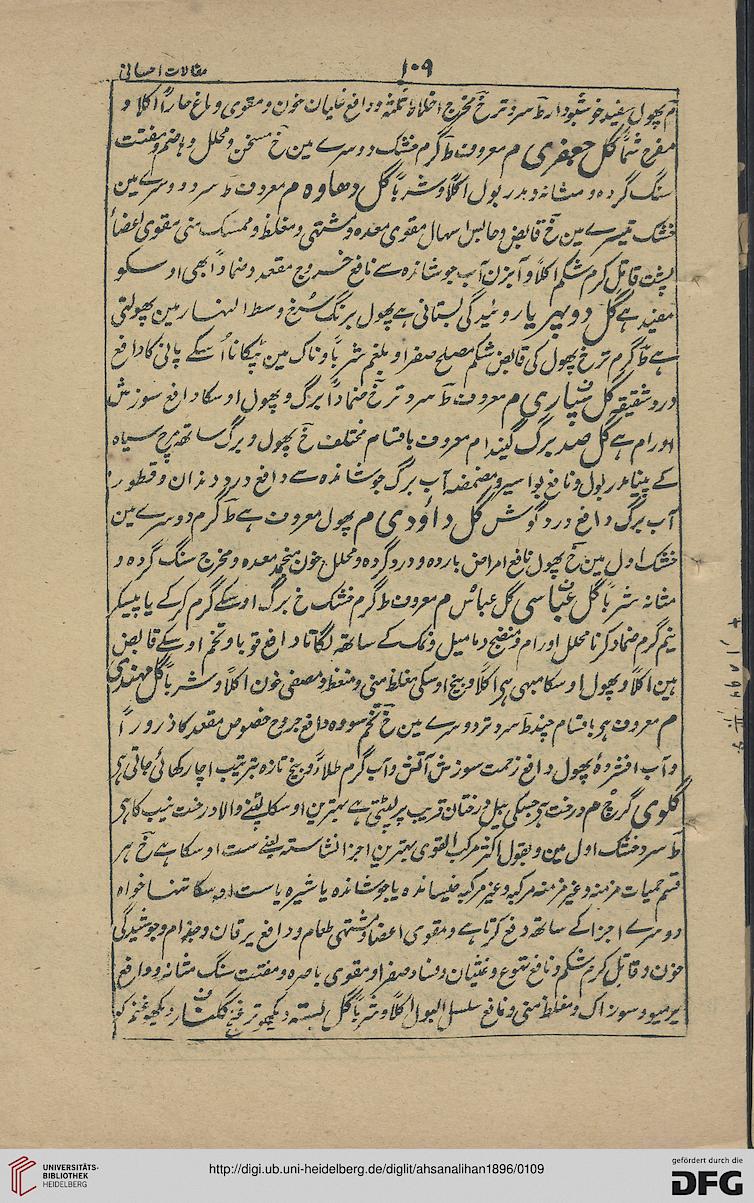 مقالات احسانی
۱۰۹
م پھول سفید خوشبودار ط سرد تر خ مخرج اخلاط ثلثہ و دافع غلیان خون و مقوی دماغ حار اکلا و
مفرح شماً گل جعفری م معروف ط گرم خشک دوسرے مین خ مسخن و محلل و ہاضم و مفتت
سنگ گردہ و مثانہ و مدر بول اکلاً و شرباً گل دھاوہ م معروف ط سرد دوسرے مین
خشک تیسرے مین خ قابض و حابس اسہال مقوی معدہ و مشتہی و مغلظ و ممسک منی مقوی اعضا
پشت قاتل کرم شکم اکلاً و آبزن آب جوشاندہ سے نافع خروج مقعد و ضماداً بھی اوسکو
مفید ہے گل دوپہریا روئیدگی بستانی ہے پھول برنگ سرخ وسط النہار مین پھولتی
ہے ط گرم تر خ پھول کی قابض شکم مصلح صفرا و بلغم شرباً و ناک مین ٹپکانا اُسکے پانی کا دافع
درد شقیقہ گل سپاری م معروف ط سرد تر خ ضماداً برگ و پھول اوسکا دافع سوزش
اورام ہے گل صد برگ گیندا م معروف باقسام مختلف خ پھول و برگ ساتھ مرچ سیاہ
کے پینا مدر بول و نافع بواسیر و مضمضہ آب برگ جوشاندہ سے دافع درد دندان و قطور
آب برگ دافع درد گوش گل داؤدی م پھول معروف ہے ط گرم دوسرے مین
خشک اول مین خ پھول نافع امراض باردہ و درد گردہ و محلل خون منجمد معدہ و مخرج سنگ گردہ و
مثانہ شرباً گل عباسی گل عباس م معروف ط گرم خشک خ برگ اوسکے گرم کرکے یا پیسکر
نیم گرم ضماد کرنا محلل اورام و منضج دمامیل و نمک کے ساتھ لگانا دافع قوبا و تخم اوسکے قابض
ہین اکلاً و پھول اوسکا مبہی ہی اکلاً و بیخ اوسکی مغلظ منی و منعظ و مصفی خون اکلاً و شرباً گل مہندی
م معروف ہی باقسام چند ط سرد تر دوسرے مین خ تخم سودہ دافع جروح خصوص مقعد کا ذروراً
و آب افشردہ پھول دافع زحمت سوزش آتش و آب گرم طلاءً و بیخ تازہ بترتیب اچار کھائی جاتی ہی
گلوی گرچ م درخت ہی جسکی بیل درختان قریب پر لپٹتی ہے بہترین اوسکا لپٹنے والا درخت نیب کا ہی
ط سرد خشک اول مین و بقول اکثر مرکب القوی بہترین اجزا نشاستہ یعنے ست اوسکا ہے خ ہر
قسم حمیات مزمنہ و غیر مزمنہ مرکبہ و غیر مرکبہ خیساندہ یا جوشاندہ یا شیرہ یا ست اوسکا تنہا خواہ
دوسرے اجزا کے ساتھ دفع کرتا ہے و مقوی اعضا و مشتہی طعام و دافع یرقان و جذام و جوشیدگی
خون و قاتل کرم شکم و نافع تہوع و غثیان و فساد صفرا و مقوی باصرہ و مفتت سنگ مثانہ و دافع
پرمیو و سوزاک و مغلظ منی و نافع سلسل البول اکلاً و شرباً گل بستہ دیکھو ترنج گلنار دیکھو
http://digi.ub.uni-heidelberg.de/diglit/ahsanalihan1896/0109
UNIVERSITÄTS-
BIBLIOTHEK
HEIDELBERG
gefördert durch die
DFG